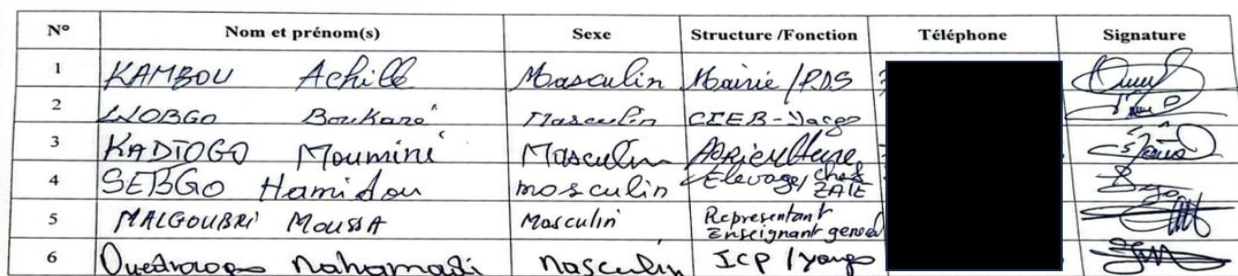 N° Nom et prénom(s) Sexe Structure /Fonction Téléphone Signature
1 KAMBOU Achille Masculin Mairie /PDS
2 WOBGO Boukaré Masculin CCEB-Yargo
3 KADIOGO Moumini Masculin Agriculture
4 SEBGO Hamidou masculin Elevage/ chef ZATE
5 MALGOUBRI MOUSSA Masculin Représentant Enseignant general
6 Ouedraogo Mahamadi Masculin ICP / yargo